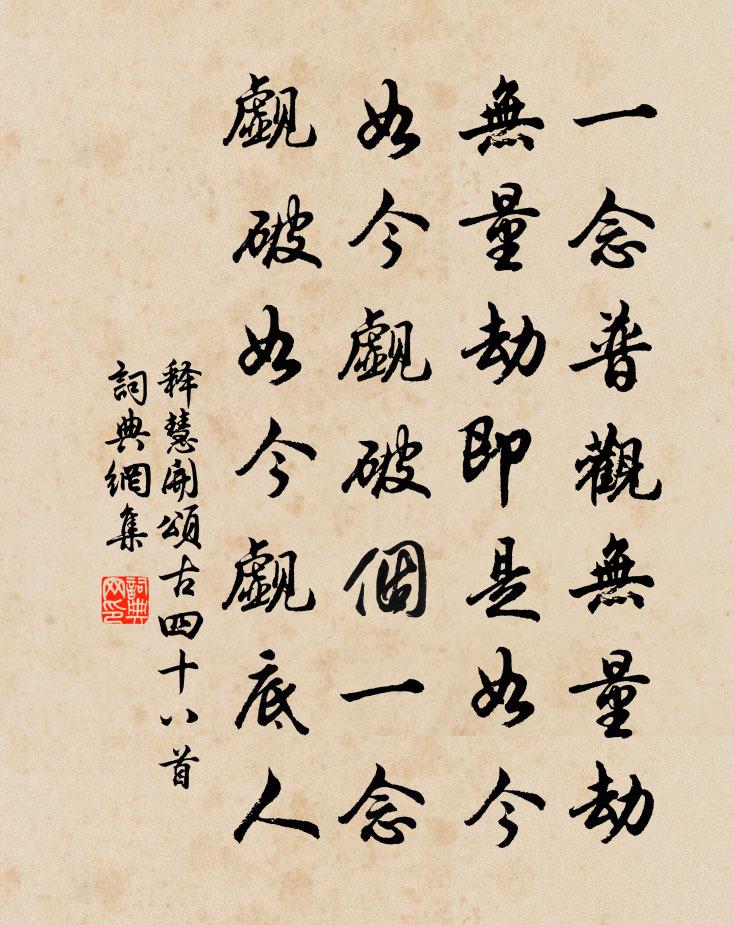 一念普觀無量劫
無量劫即是如今
如今覷破個一念
覷破如今覷底人
释慧開頌古四十八首
詞典網集
詞典
网印